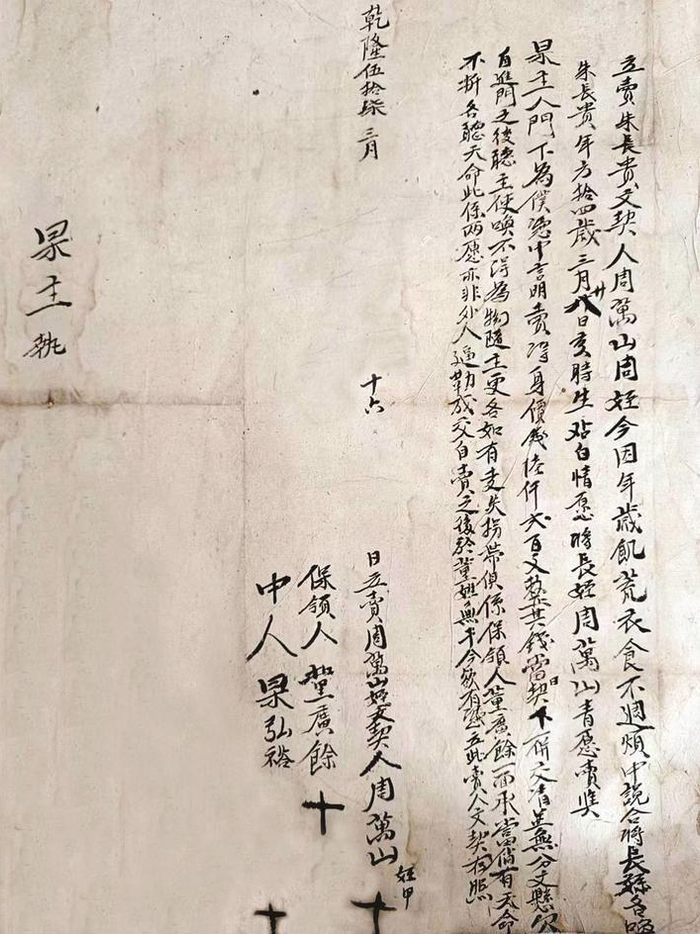 立賣朱長貴文契人周萬山周姪今因年歲飢荒衣食不週煩中說合將長孫名喚
朱長貴年方拾四歲三月廿八日亥時生站自情愿將長姪周萬山青愿賣與
杲主入門下為僕憑中言明賣得身價錢陸仟弍百文整其錢當日契下一併交清並無分文懸欠
自進門之後聽主使喚不得為物隨主更名如有走失拐帶俱係保領人董廣餘一面承當倘有天命
不測各聽天命此係兩愿亦非外人逼勒成交自賣之後於董姓無干今欲有憑立此賣人文契存照
乾隆伍拾柒 三月 十六 日立賣周萬山姪文契人周萬山 姪甲 十
保領人 董廣餘 十
中人 杲弘裕 十
杲主執